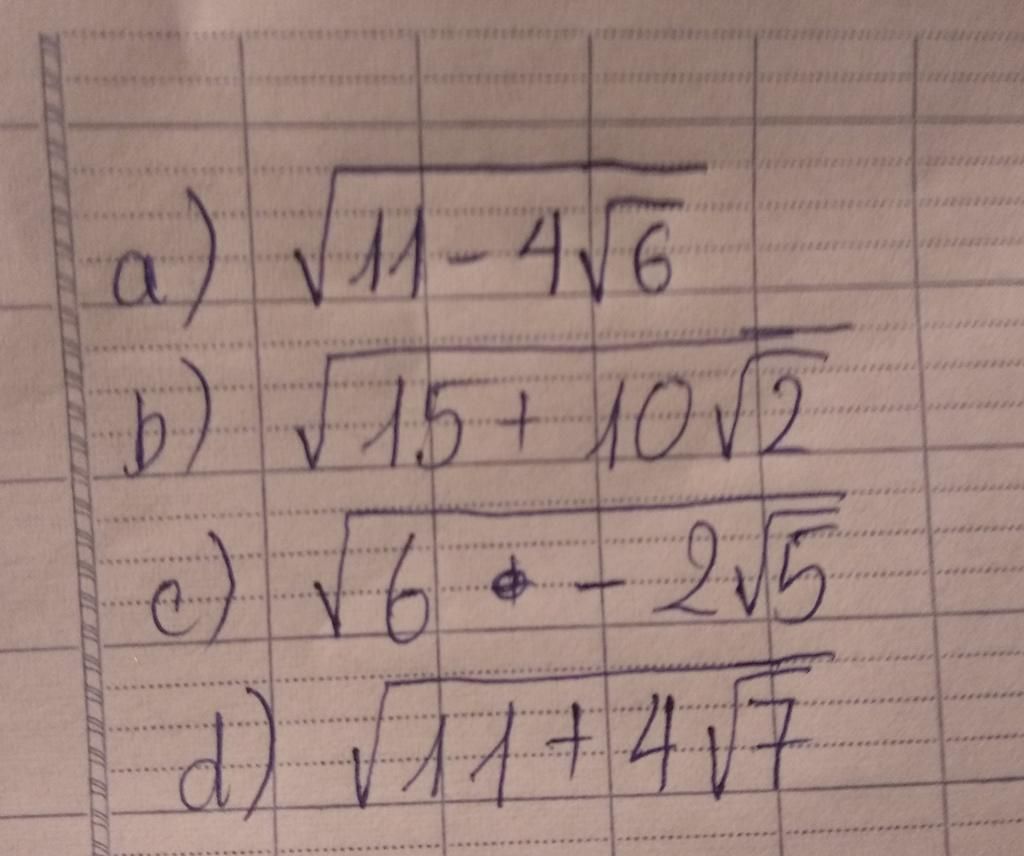 a) √(11 - 4√6)
b) √(15 + 10√2)
c) √(6 - 2√5)
d) √(11 + 4√7)